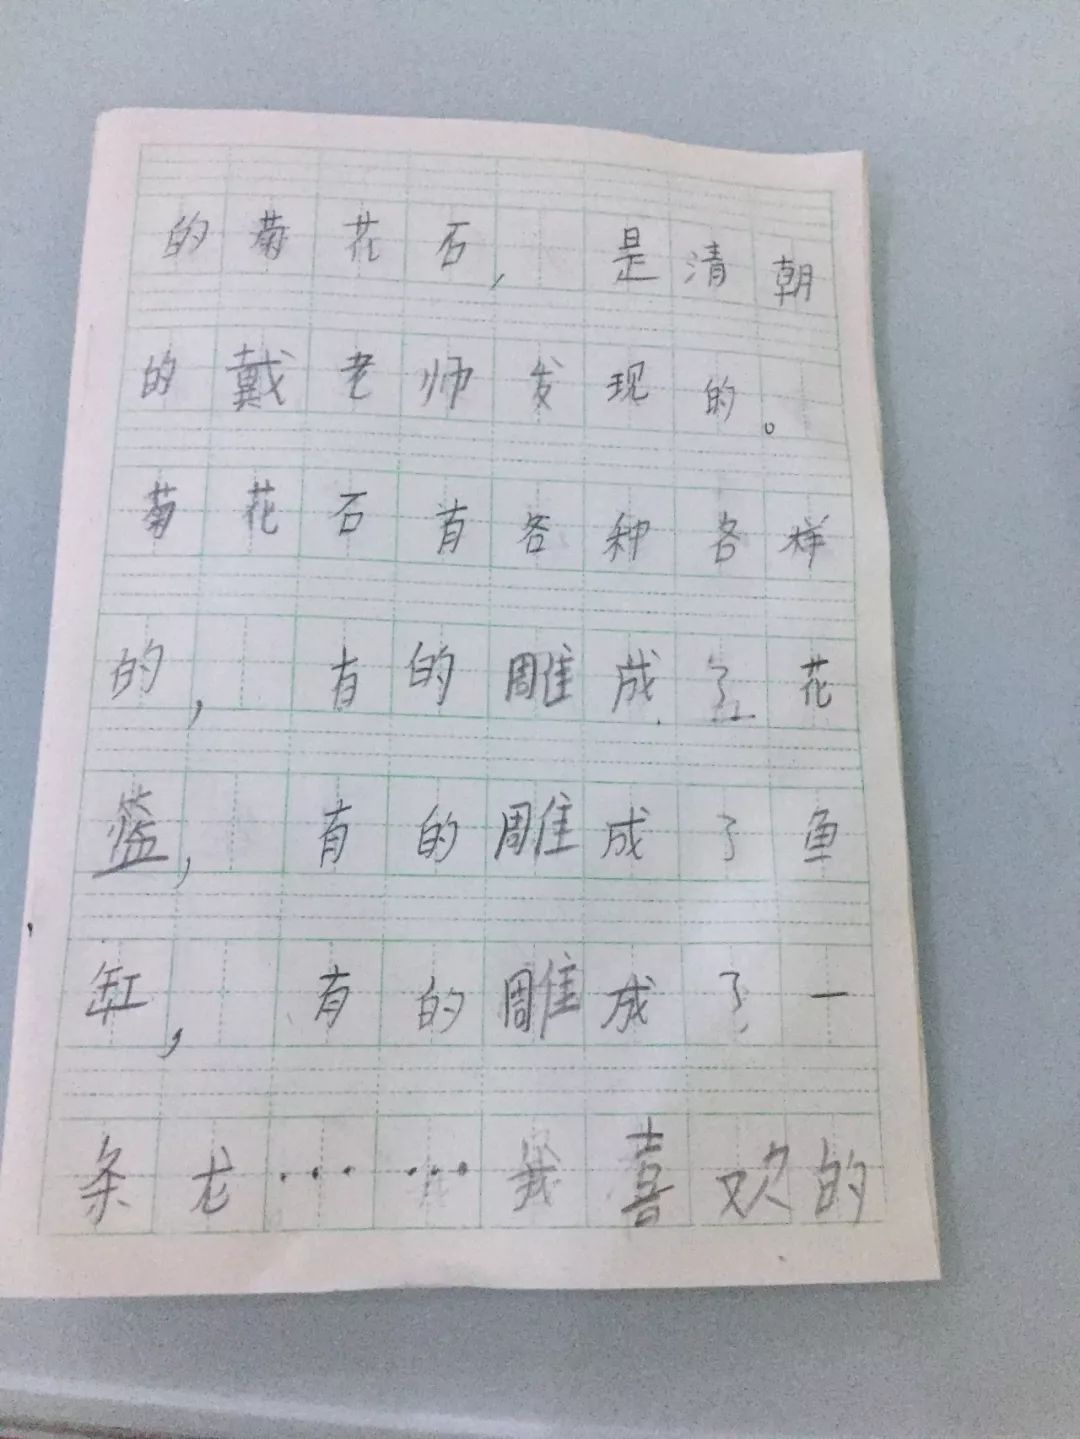 的菊花石，是清朝
的戴老师发现的。
菊花石有各种各样
的，有的雕成了花
篮，有的雕成了鱼
缸，有的雕成了一
条龙……我喜欢的